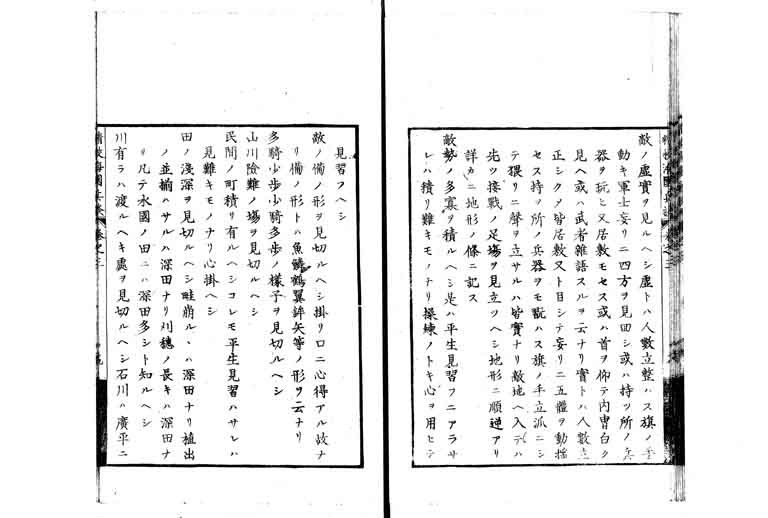 敵ノ虚實ヲ見ルヘシ虚トハ人數立整ハス旗ノ手
動キ軍士妄リニ四方ヲ見回シ或ハ持ツ所ノ兵
器ヲ玩ヒ又居敷モセス或ハ首ヲ仰テ内冑白ク
見ヘ或ハ武者雜語スルヲ云ナリ實トハ人數立
正シクメ皆居敷又ト目シテ妄リニ五體ヲ動揺
セス持ツ所ノ兵器ヲモ翫ハス旗ノ手立派ニシ
テ猥リニ聲ヲ立サルハ皆實ナリ敵地ヘ入テハ
先ツ接戰ノ足場ヲ見立ツヘシ地形ニ順逆アリ
詳カニ地形ノ條ニ記ス
敵勢ノ多寡ヲ積ルヘシ是ハ平生見習フニアラサ
レハ積リ難キモノナリ操練ノトキ心ヲ用ヒテ
見習フヘシ
敵ノ備ノ形ヲ見切ルヘシ掛リ口ニ心得アル故ナ
リ備ノ形トハ魚鱗鶴翼鉾矢等ノ形ヲ云ナリ
多騎少歩少騎多歩ノ樣子ヲ見切ルヘシ
山川險難ノ場ヲ見切ルヘシ
民間ノ町積リ有ルヘシコレモ平生見習ハサレハ
見難キモノナリ心掛ヘシ
田ノ淺深ヲ見切ルヘシ畦崩ル丶ハ深田ナリ植出
ノ並揃ハサルハ深田ナリ刈穂ノ長キハ深田ナ
リ凡テ水國ノ田ニハ深田多シト知ルヘシ
川有ラハ渡ルヘキ處ヲ見切ルヘシ石川ハ廣平ニ
精校海國兵談 卷之三